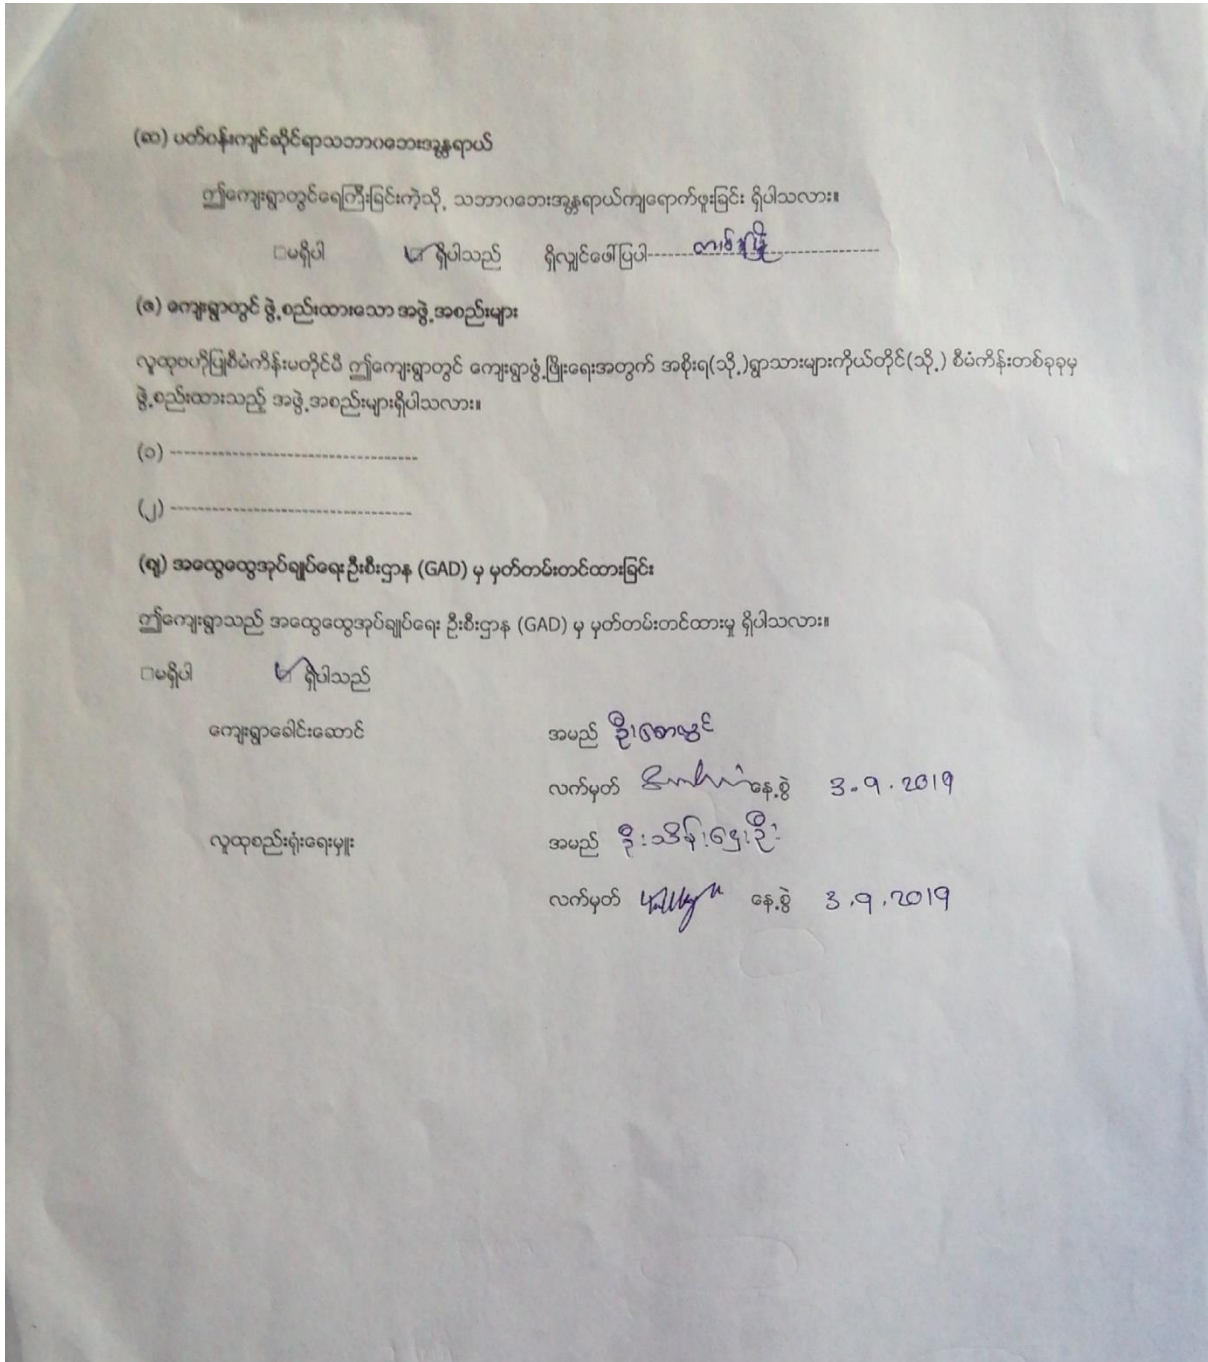 (ဆ) ပတ်ဝန်းကျင်ဆိုင်ရာသဘာဝဘေးအန္တရာယ်
ဤကျေးရွာတွင်ရေကြီးခြင်းကဲ့သို့ သဘာဝဘေးအန္တရာယ်ကျရောက်ဖူးခြင်း ရှိပါသလား။
□မရှိပါ ☑ ရှိပါသည် ရှိလျှင်ဖေါ်ပြပါ-------
(ဇ) ကျေးရွာတွင် ဖွဲ့စည်းထားသော အဖွဲ့အစည်းများ
လူထုဗဟိုပြုစီမံကိန်းမတိုင်မီ ဤကျေးရွာတွင် ကျေးရွာဖွံ့ဖြိုးရေးအတွက် အစိုးရ(သို့)ရွာသားများကိုယ်တိုင်(သို့) စီမံကိန်းတစ်ခုခုမှ
ဖွဲ့စည်းထားသည့် အဖွဲ့အစည်းများရှိပါသလား။
(၁) ------------------------------------
(၂) -----------------------------------
(ဈ) အထွေထွေအုပ်ချုပ်ရေးဦးစီးဌာန (GAD) မှ မှတ်တမ်းတင်ထားခြင်း
ဤကျေးရွာသည် အထွေထွေအုပ်ချုပ်ရေး ဦးစီးဌာန (GAD) မှ မှတ်တမ်းတင်ထားမှု ရှိပါသလား။
□မရှိပါ ☑ ရှိပါသည်
ကျေးရွာခေါင်းဆောင် အမည် ဦး
လက်မှတ် နေ့စွဲ 3.9.2019
လူထုစည်းရုံးရေးမှူး အမည် ဦးသိန်းဌေးဦး
လက်မှတ် နေ့စွဲ 3.9.2019